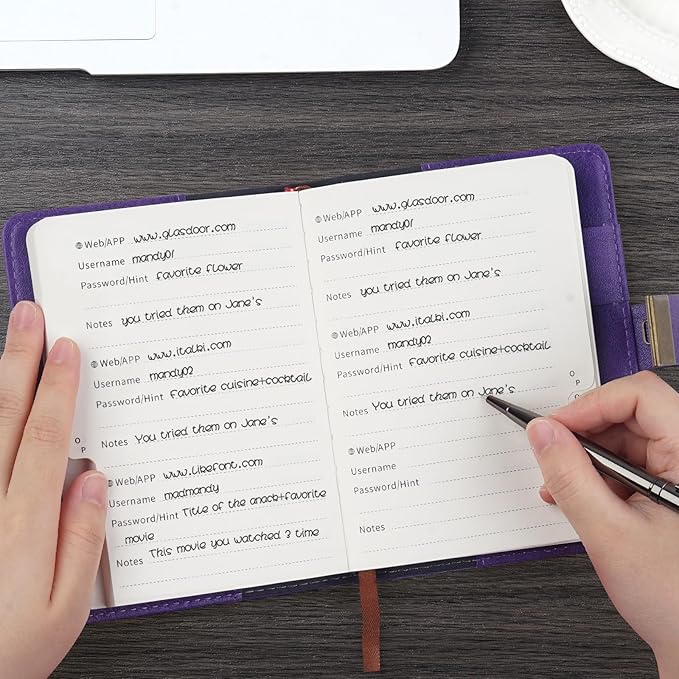 Web/APP www.glasdoor.com
Username mandy01
Password/Hint favorite flower
Notes you tried them on Jane's
Web/APP www.italki.com
Username mandy02
Password/Hint favorite cuisine+cocktail
Notes You tried them on Jane's
Web/APP www.likefont.com
Username madmandy
Password/Hint Title of the anack+favorite
movie
Notes This movie you watched 3 time
O
P
Web/APP www.glasdoor.com
Username mandy01
Password/Hint favorite flower
Notes you tried them on Jane's
Web/APP www.italki.com
Username mandy02
Password/Hint favorite cuisine+cocktail
Notes You tried them on Jane's
Web/APP
Username
Password/Hint
Notes
O
P